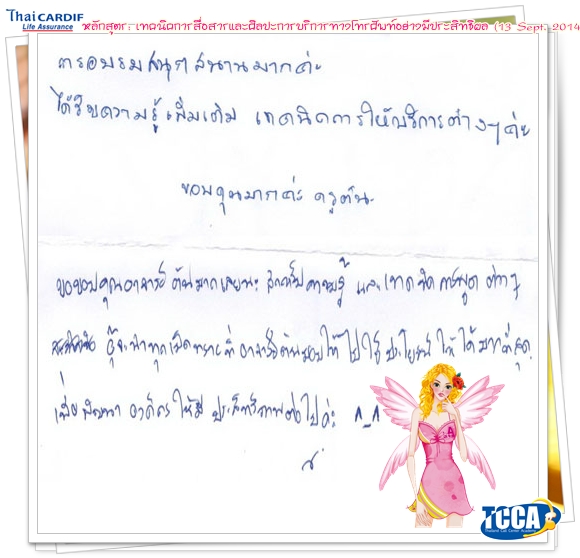 ThaiCARDIF
Life Assurance
หลักสูตร : เทคนิคการสื่อสารและศิลปะการบริการทางโทรศัพท์อย่างมีประสิทธิผล (13 Sept. 2014
การอบรมสนุกสนานมากค่ะ
ได้รับความรู้เพิ่มเติม เทคนิคการให้บริการต่างๆค่ะ
ขอบคุณมากค่ะ ครูต้น
ขอขอบคุณอาจารย์ต้นมากเลยนะ สำหรับความรู้ และเทคนิคการพูด ต่างๆ
จะนำทุกเม็ดทรายที่อาจารย์ต้นมอบให้ ไปใช้ประโยชน์ให้ได้มากที่สุด
เพื่อพัฒนา องค์กรให้มี ประสิทธิภาพต่อไปค่ะ ^_^
TCCA
Thailand Call Center Academy